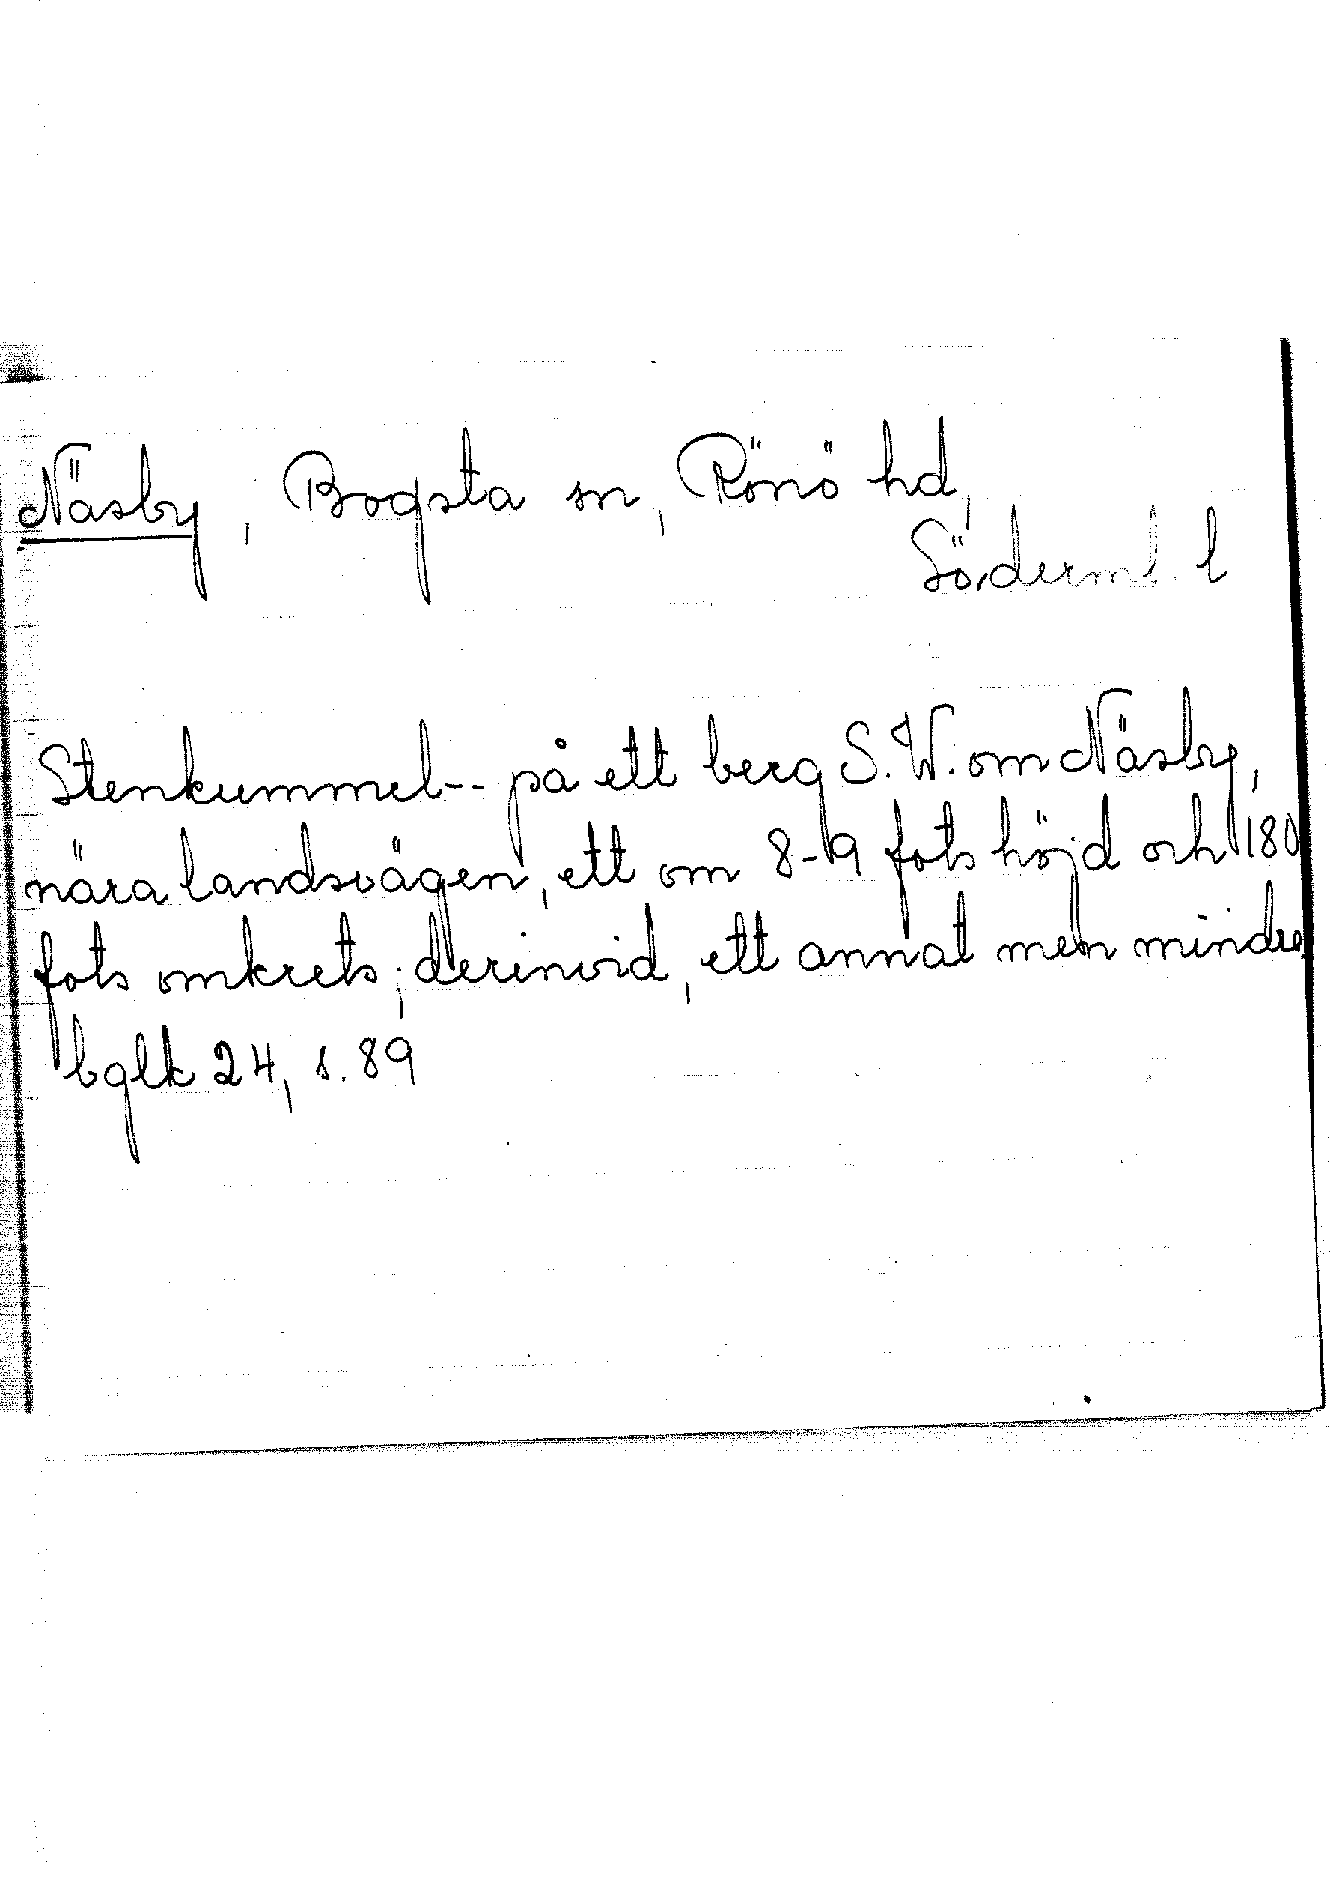 Näsby, Bogsta sn, Rönö hd,
Söderml. l
Stenkummel-- på ett berg S.W. om Näsby,
nära landsvägen, ett om 8-9 fots höjd och 180
fots omkrets; derinvid, ett annat men mindre.
bglk 24, s. 89